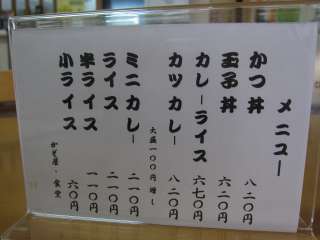 メニュー
かつ丼 八二〇円
玉子丼 六二〇円
カレーライス 六七〇円
カツカレー 八二〇円
大盛一〇〇円増し
ミニカレー 二一〇円
ライス 二一〇円
半ライス 一一〇円
小ライス 六〇円